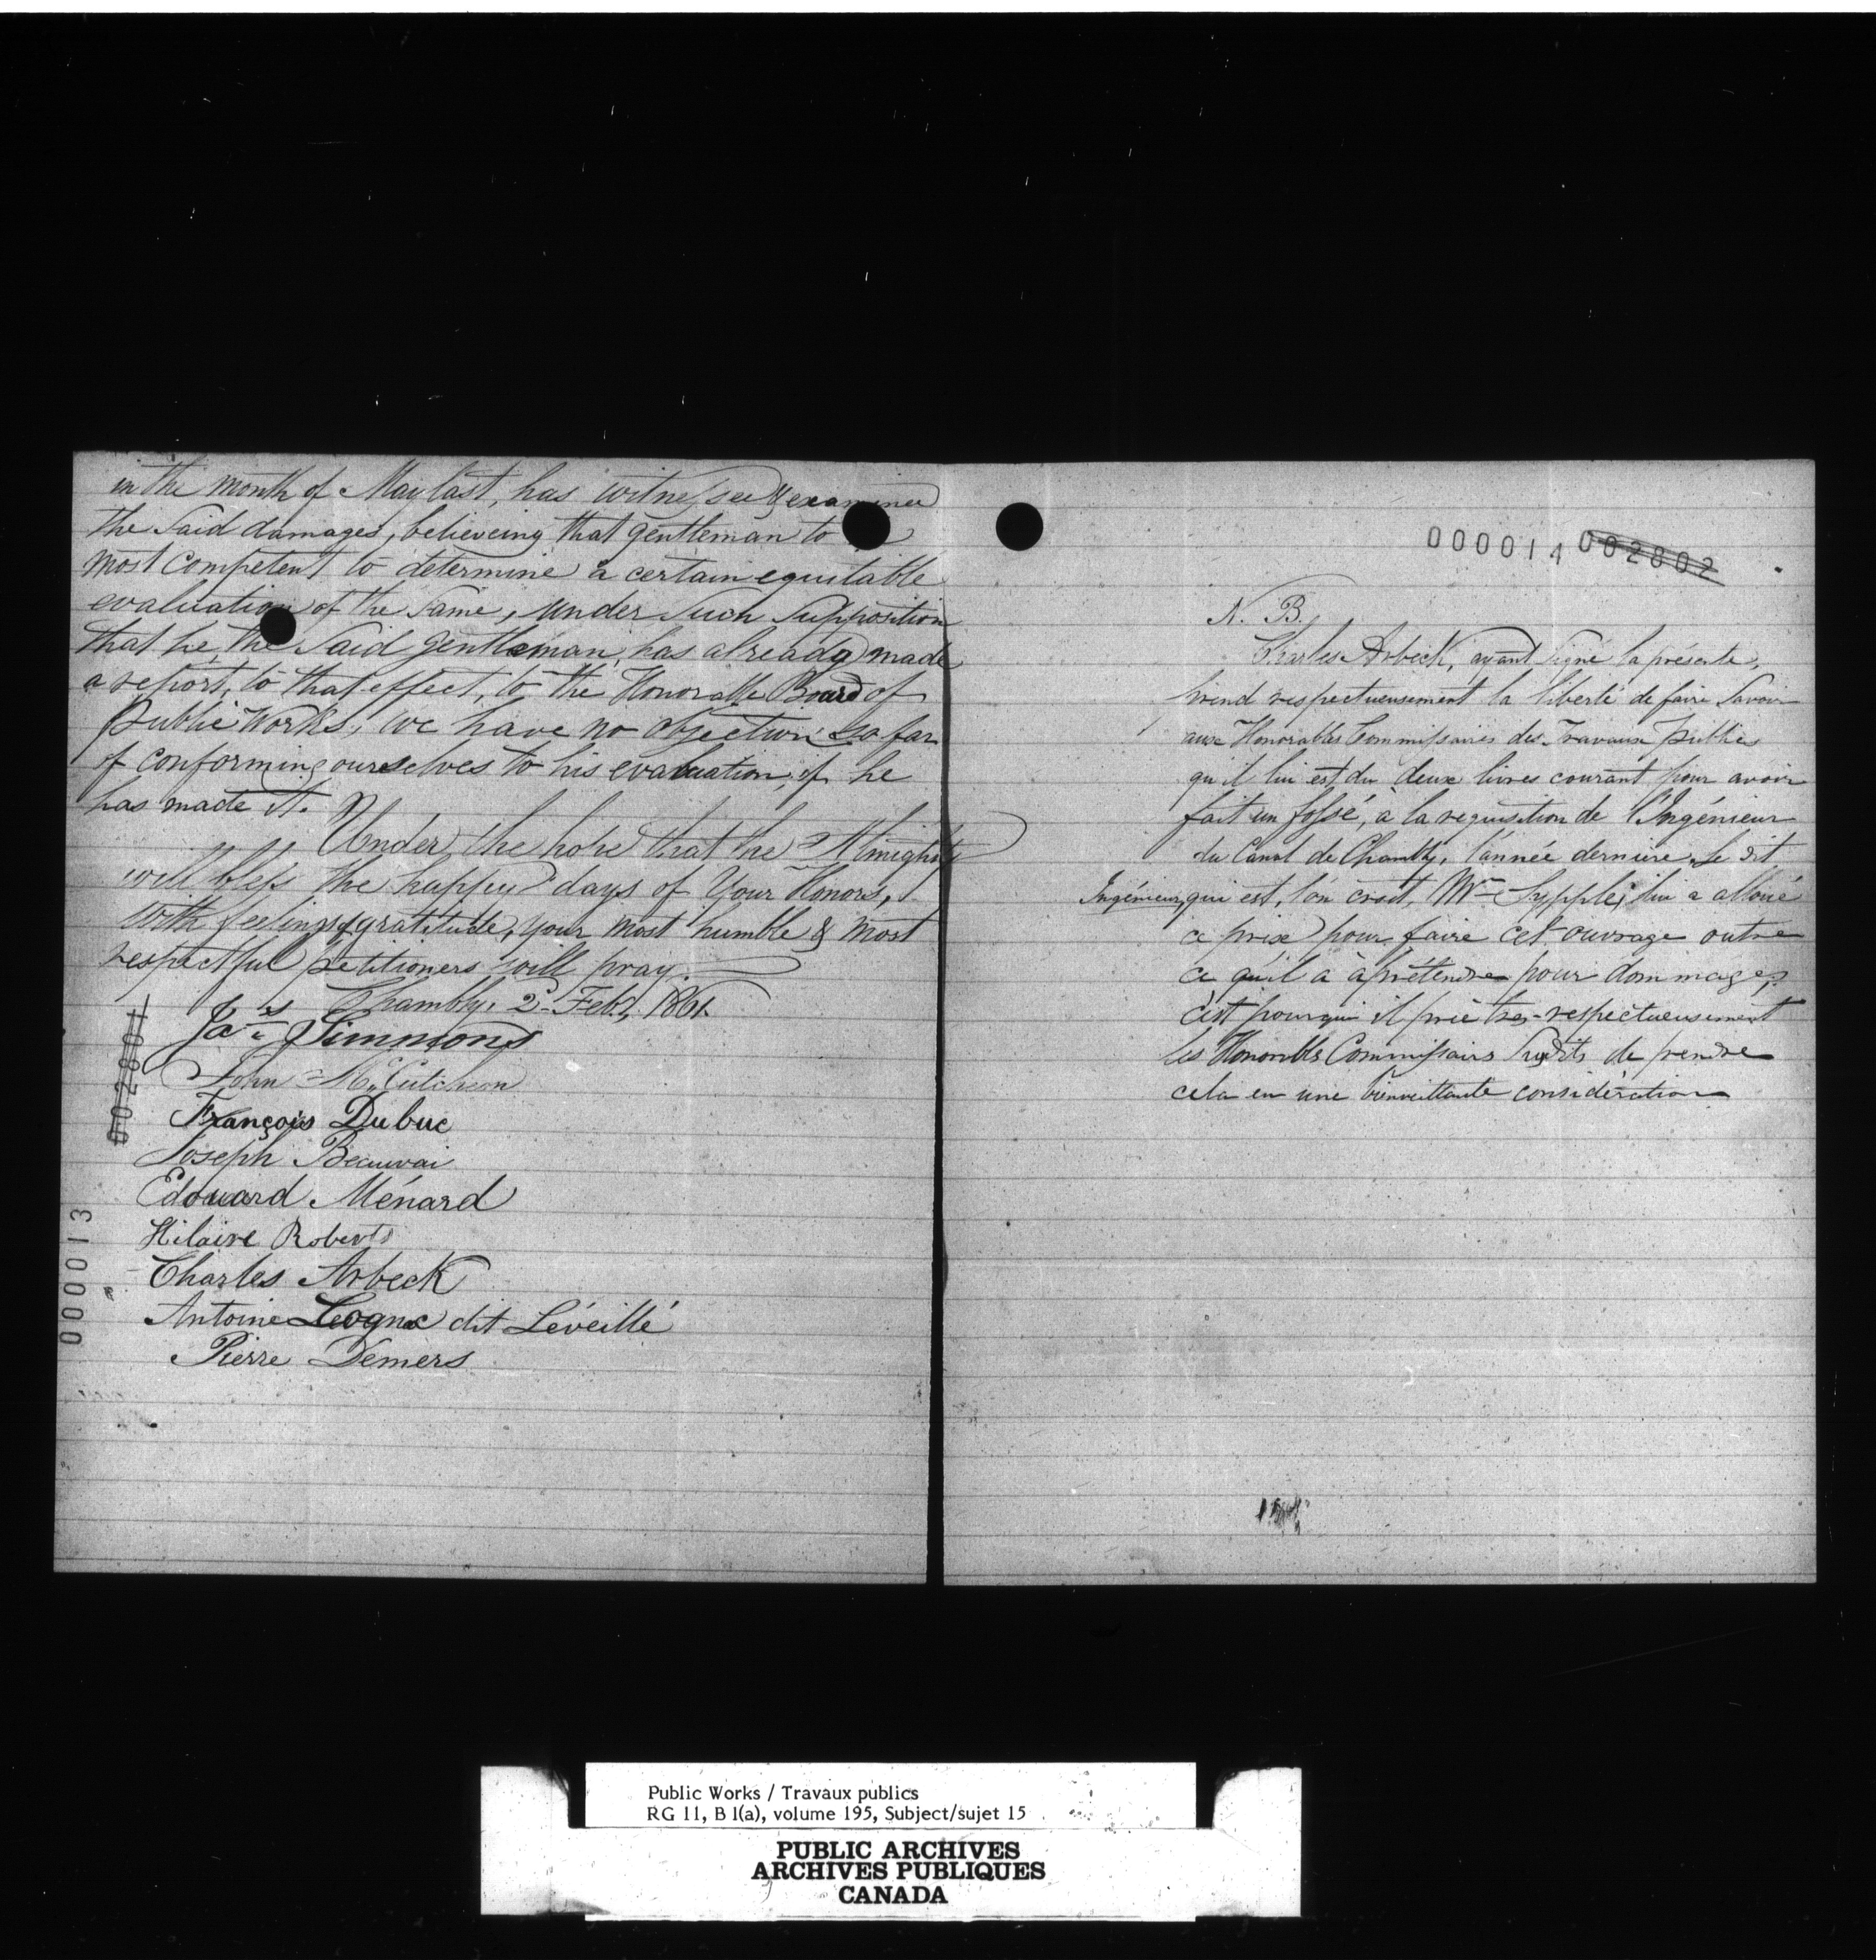 in the month of May last, has witnessed & examined
the said damages, believeing that gentleman to
most competent to determine a certain equitable
evaluation of the same, under such supposition
that he, the said gentleman, has already made
a report, to that effect, to the Honorable Board of
public Works, we have no objection so far
of conforming ourselves to his evaluation, if he
has made it.
Under the hope that the Almighty
will bless the happy days of Your Honors,
with feelings of gratitude, your most humble & most
respectful petitioners will pray.
Chambly, 2d Feby. 1861.
Jas. Simmons
John McCutcheon
François Dubuc
Joseph Beauvai
Edouard Ménard
Hilaire Roberts
Charles Arbeck
Antoine Leogne dit Léveillé
Pierre Demers
002801
000013
000014 002802
N. B.
Charles Arbeck, ayant signé la présente,
prend respectueusement la liberté de faire savoir
aux Honorables Commissaires des Travaux publics
qu'il lui est du deux livres courant pour avoir
fait un fossé, à la requisition de l'Ingénieur
du Canal de Chambly, l'année dernière. Le dit
Ingénieur, qui est, l'on croit, Mr Sypple, lui a alloué
ce prix pour faire cet ouvrage outre
ce qu'il a à prétendre pour dommages;
c'est pourquoi il prie très-respectueusement
les Honorables Commissaires susdits de prendre
cela en une bienveillante considération
Public Works / Travaux publics
RG 11, B 1(a), volume 195, Subject/sujet 15
PUBLIC ARCHIVES
ARCHIVES PUBLIQUES
CANADA